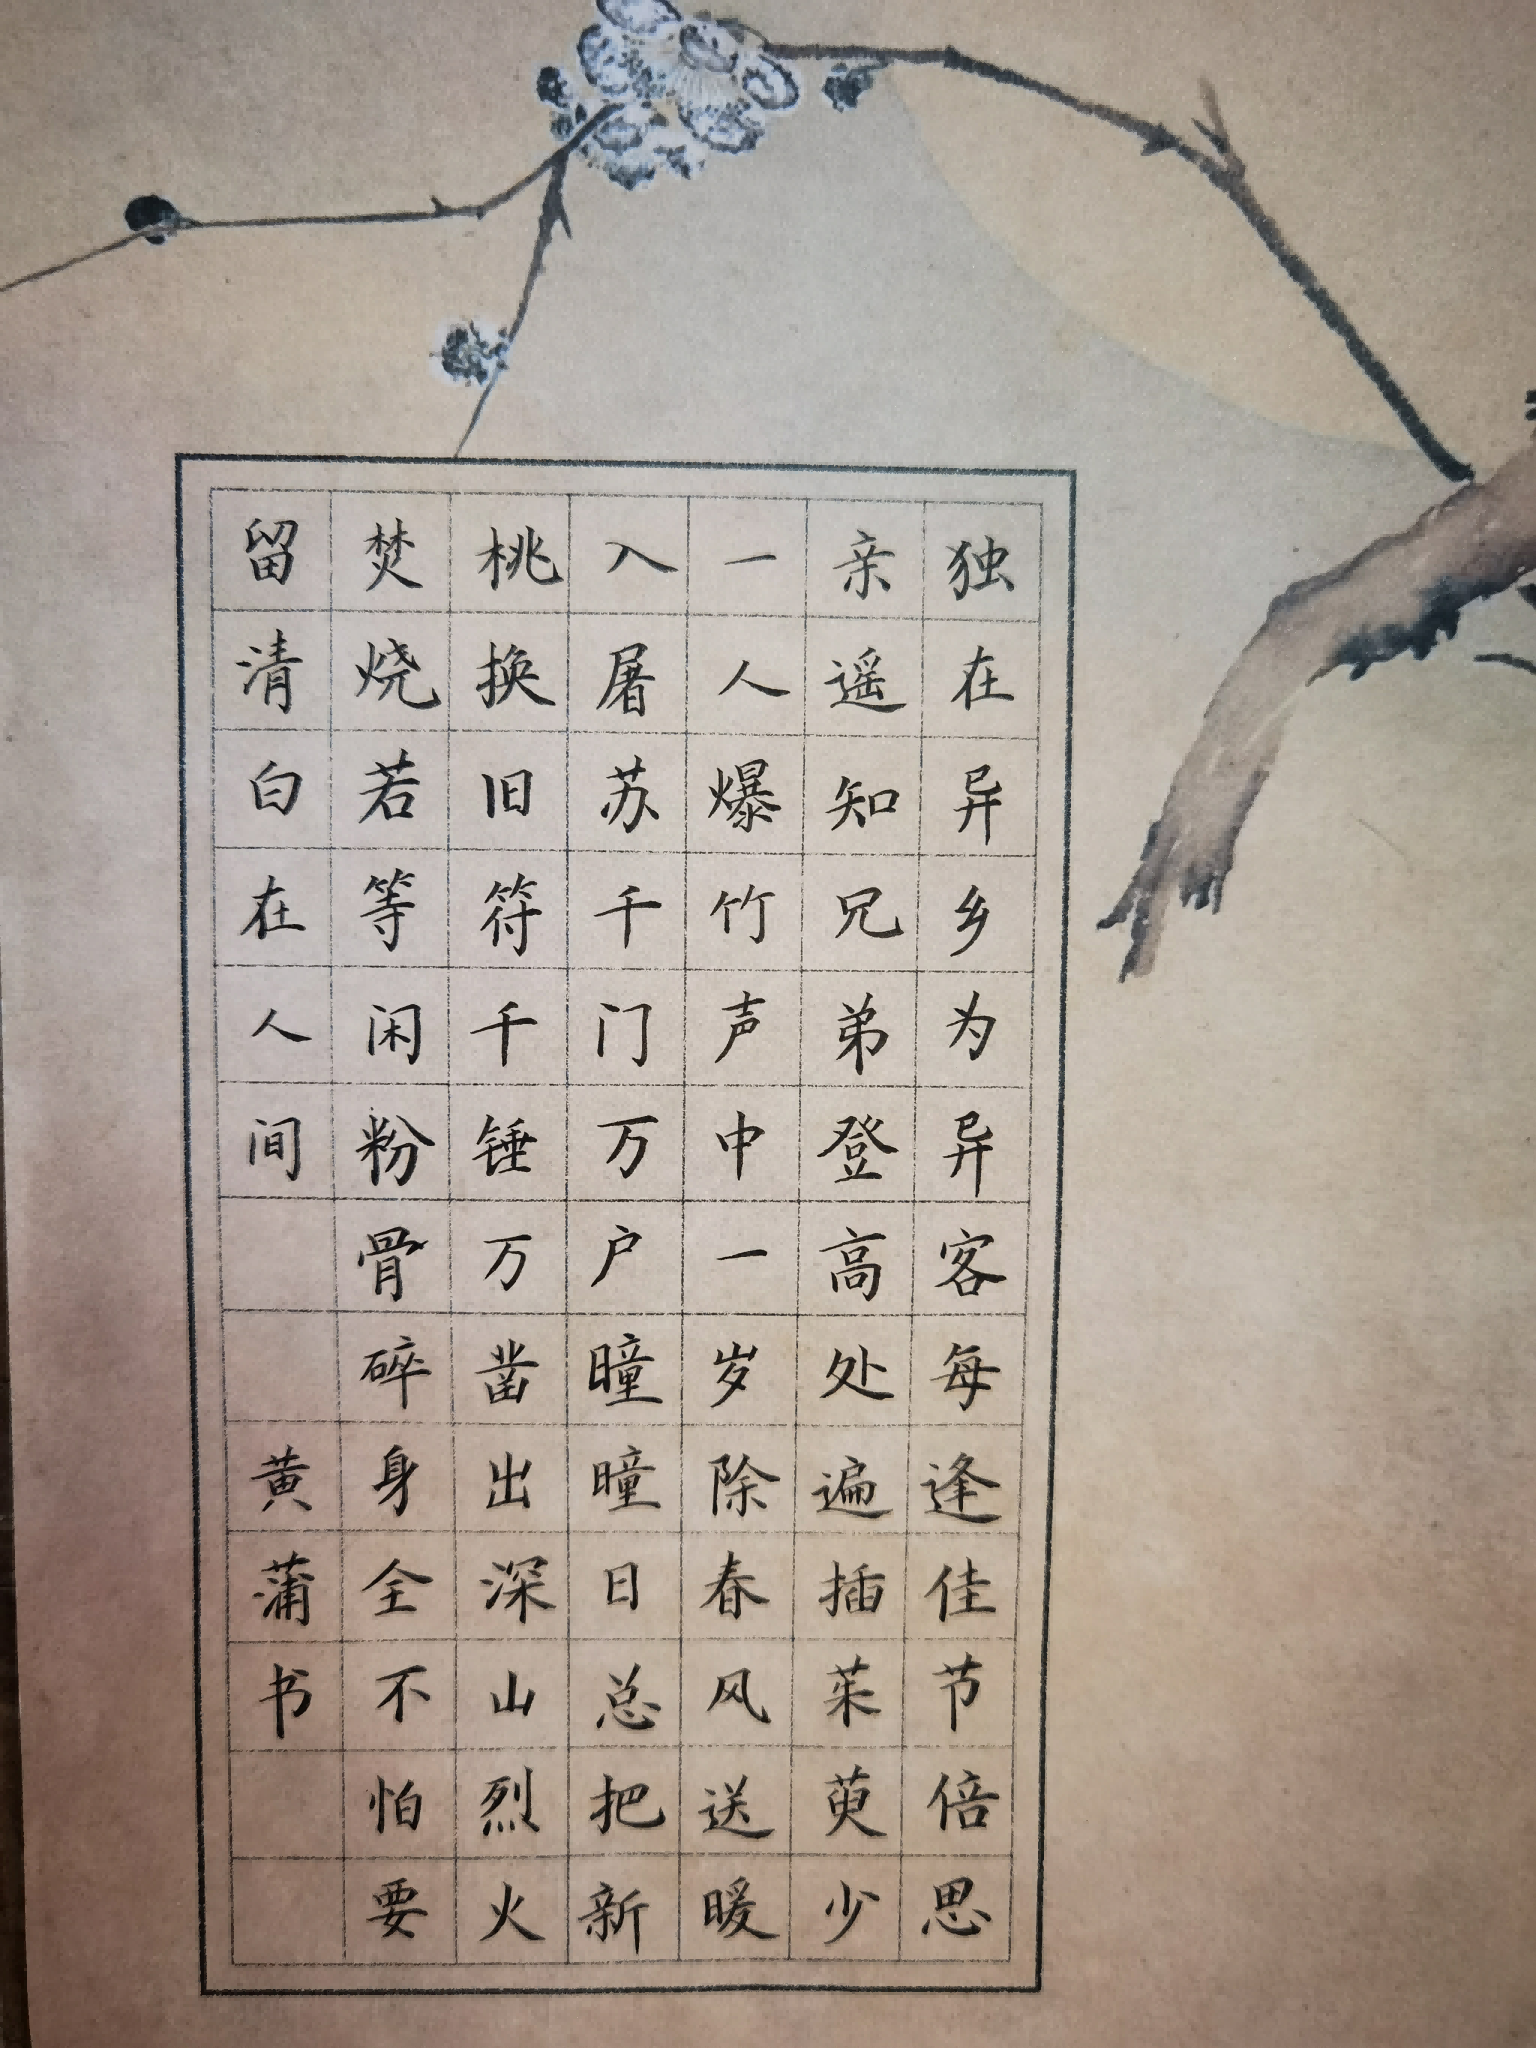 独在异乡为异客每逢佳节倍思
亲遥知兄弟登高处遍插茱萸少
一人爆竹声中一岁除春风送暖
入屠苏千门万户曈曈日总把新
桃换旧符千锤万凿出深山烈火
焚烧若等闲粉骨碎身全不怕要
留清白在人间 黄蒲书